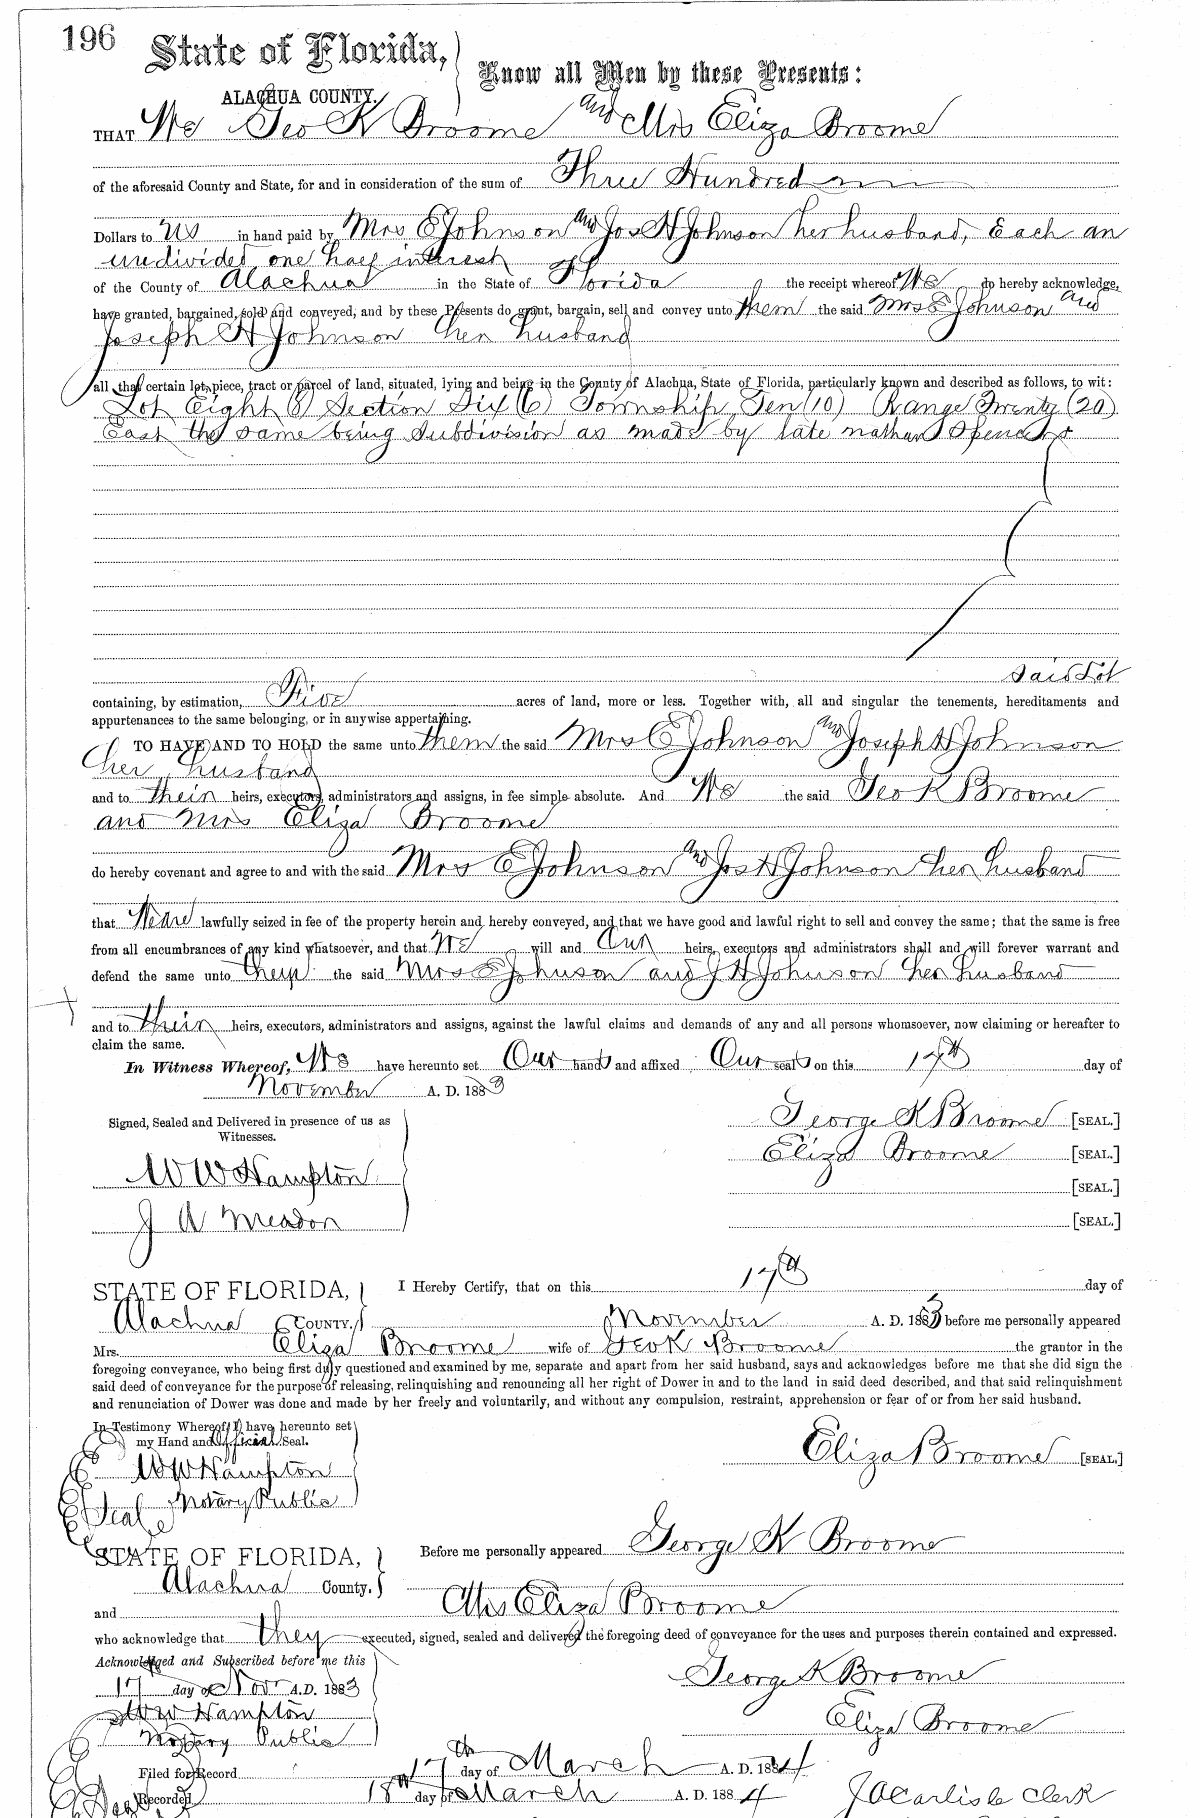 196
State of Florida,
Know all Men by these Presents:
ALACHUA COUNTY.
THAT We Geo K Broome and Mrs Eliza Broome
of the aforesaid County and State, for and in consideration of the sum of Three Hundred
Dollars to us in hand paid by Mrs E Johnson and Jos H Johnson her husband, Each an
undivided one half interest
of the County of Alachua in the State of Florida the receipt whereof We do hereby acknowledge,
have granted, bargained, sold and conveyed, and by these Presents do grant, bargain, sell and convey unto them the said Mrs E Johnson and
Joseph H Johnson her husband
all that certain lot, piece, tract or parcel of land, situated, lying and being in the County of Alachua, State of Florida, particularly known and described as follows, to wit:
Lot Eight (8) Section Six (6) Township Ten (10) Range Twenty (20)
East the same being Subdivision as made by late nathan Spencer
said Lot
containing, by estimation, Five acres of land, more or less. Together with, all and singular the tenements, hereditaments and
appurtenances to the same belonging, or in anywise appertaining.
TO HAVE AND TO HOLD the same unto them the said Mrs E Johnson and Joseph H Johnson
her husband
and to their heirs, executors, administrators and assigns, in fee simple absolute. And We the said Geo K Broome
and Mrs Eliza Broome
do hereby covenant and agree to and with the said Mrs E Johnson and Jos H Johnson her husband
that We are lawfully seized in fee of the property herein and hereby conveyed, and that we have good and lawful right to sell and convey the same; that the same is free
from all encumbrances of any kind whatsoever, and that We will and Our heirs, executors and administrators shall and will forever warrant and
defend the same unto them the said Mrs E Johnson and J H Johnson her husband
and to their heirs, executors, administrators and assigns, against the lawful claims and demands of any and all persons whomsoever, now claiming or hereafter to
claim the same.
In Witness Whereof, We have hereunto set Our hands and affixed Our seals on this 17th day of
November A. D. 1883
Signed, Sealed and Delivered in presence of us as
Witnesses.
George K Broome [SEAL.]
Eliza Broome [SEAL.]
W W Hampton
[SEAL.]
J A Meador
[SEAL.]
STATE OF FLORIDA,
I Hereby Certify, that on this 17th day of
Alachua COUNTY. November A. D. 1883 before me personally appeared
Mrs. Eliza Broome wife of Geo K Broome the grantor in the
foregoing conveyance, who being first duly questioned and examined by me, separate and apart from her said husband, says and acknowledges before me that she did sign the
said deed of conveyance for the purpose of releasing, relinquishing and renouncing all her right of Dower in and to the land in said deed described, and that said relinquishment
and renunciation of Dower was done and made by her freely and voluntarily, and without any compulsion, restraint, apprehension or fear of or from her said husband.
In Testimony Whereof, I have hereunto set
my Hand and Official Seal.
Eliza Broome [SEAL.]
W W Hampton
Notary Public
Seal
STATE OF FLORIDA,
Before me personally appeared George K Broome
Alachua County.
and Mrs Eliza Broome
who acknowledge that they executed, signed, sealed and delivered the foregoing deed of conveyance for the uses and purposes therein contained and expressed.
Acknowledged and Subscribed before me this
George K Broome
17 day of Nov A.D. 1883
W W Hampton
Eliza Broome
Notary Public
Filed for Record 17th day of March A. D. 1884
Recorded 18th day of March A. D. 1884 J A Carlisle Clerk